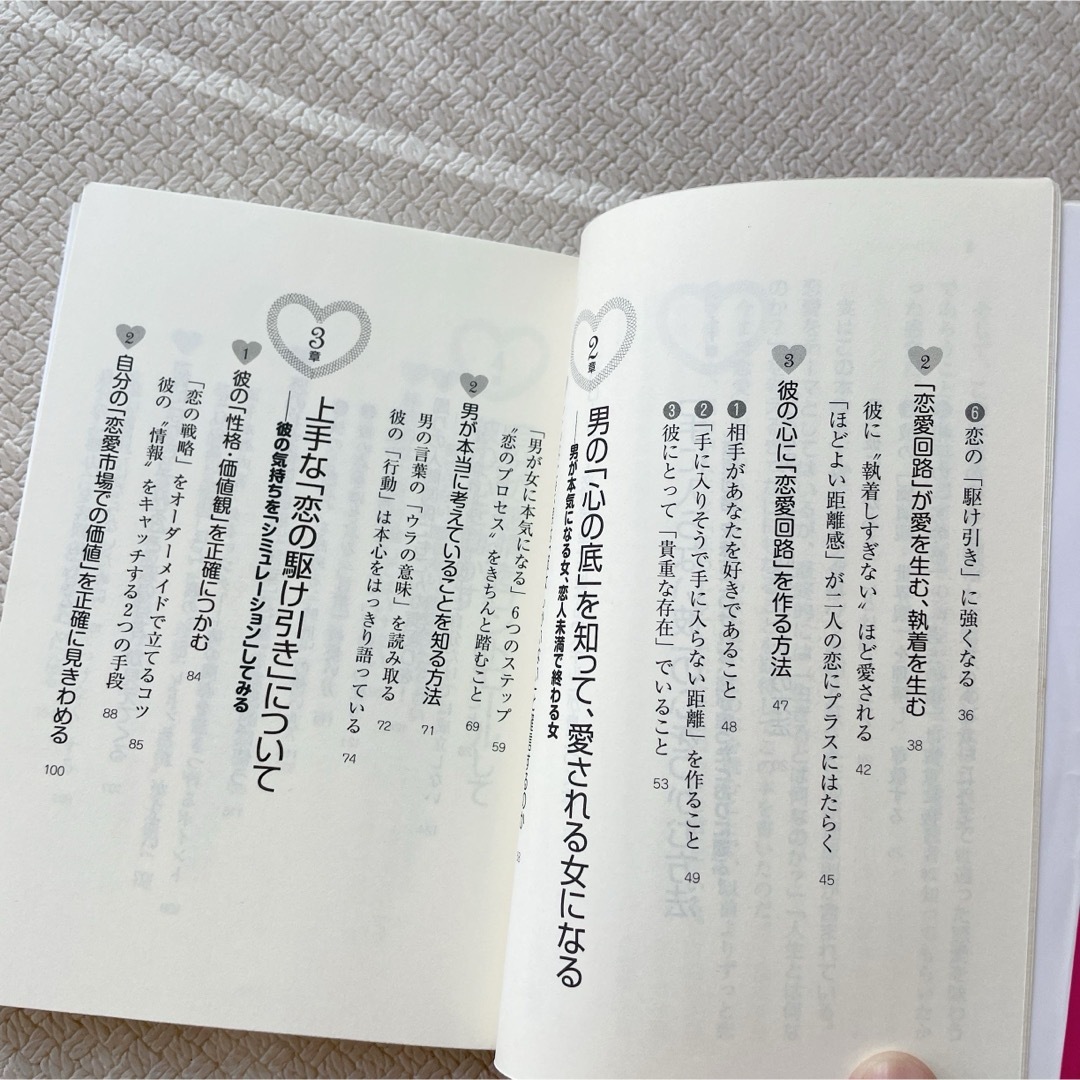 ❻ 恋の「駆け引き」に強くなる 36
2 「恋愛回路」が愛を生む、執着を生む 38
彼に〝執着しすぎない〟ほど愛される 42
「ほどよい距離感」が二人の恋にプラスにはたらく 45
3 彼の心に「恋愛回路」を作る方法 47
❶ 相手があなたを好きであること 48
❷ 「手に入りそうで手に入らない距離」を作ること 49
❸ 彼にとって「貴重な存在」でいること 53
2章 男の「心の底」を知って、愛される女になる
――男が本気になる女、恋人未満で終わる女
「男が女に本気になる」6つのステップ 59
〝恋のプロセス〟をきちんと踏むこと 69
2 男が本当に考えていることを知る方法 71
男の言葉の「ウラの意味」を読み取る 72
彼の「行動」は本心をはっきり語っている 74
3章 上手な「恋の駆け引き」について
――彼の気持ちを「シミュレーション」してみる
1 彼の「性格・価値観」を正確につかむ 84
「恋の戦略」をオーダーメイドで立てるコツ 85
彼の〝情報〟をキャッチする2つの手段 88
2 自分の「恋愛市場での価値」を正確に見きわめる 100